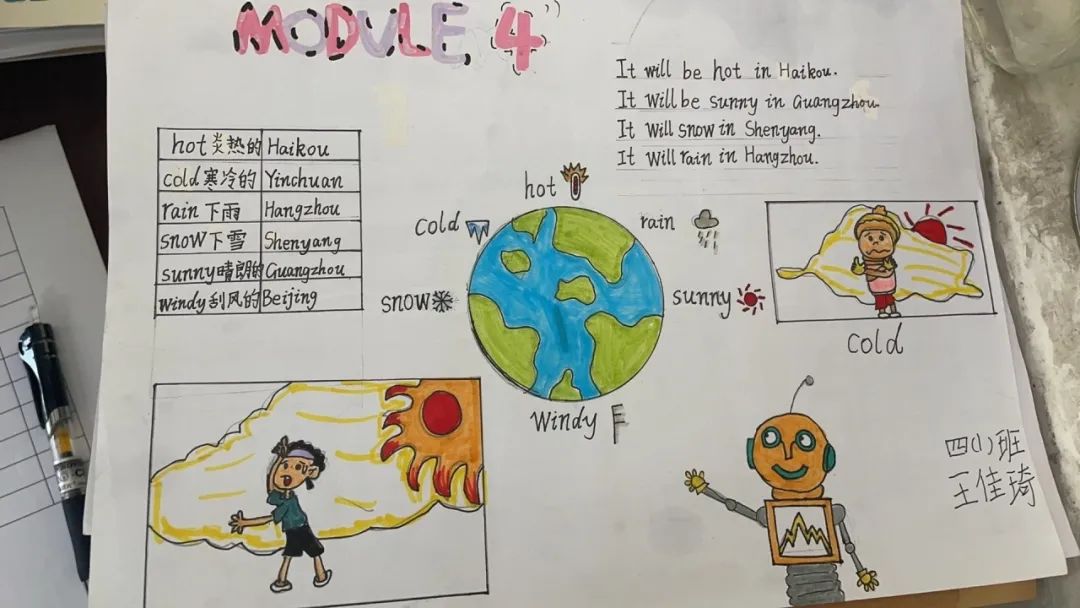 MODULE 4
It will be hot in Haikou.
It will be sunny in Guangzhou.
It will snow in Shenyang.
It will rain in Hangzhou.
hot 炎热的 Haikou
cold 寒冷的 Yinchuan
rain 下雨 Hangzhou
snow 下雪 Shenyang
sunny 晴朗的 Guangzhou
windy 刮风的 Beijing
hot
cold
rain
snow
sunny
windy
cold
四(1)班
王佳琦